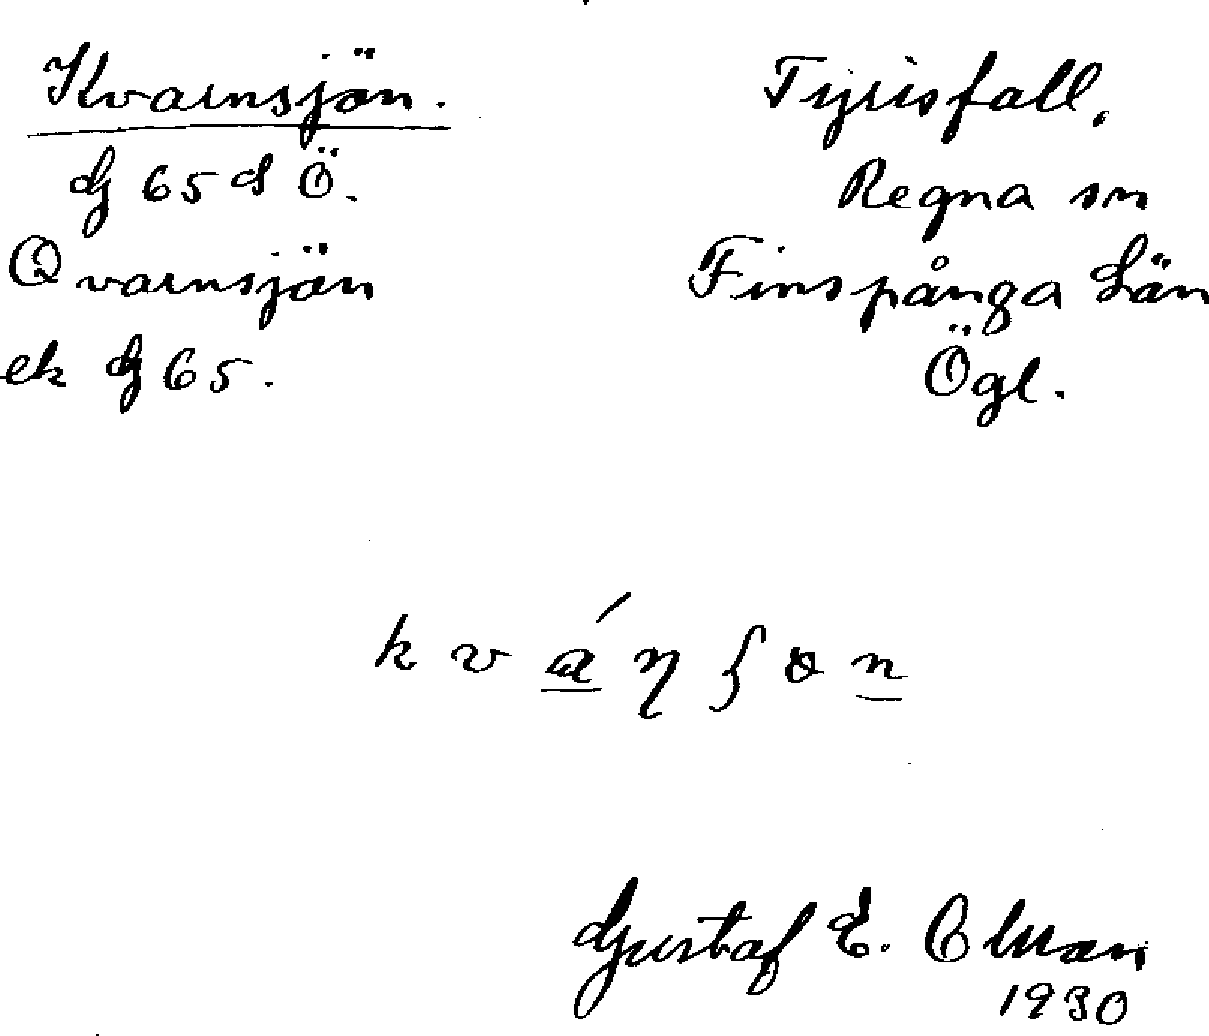 Kvarnsjön.
dj 65 d Ö.
Qvarnsjön
ek dj 65.
Tyrisfall,
Regna sn
Finspånga Län
Ögl.
k v á η ʃ ɵ n
Gustaf E.
1930